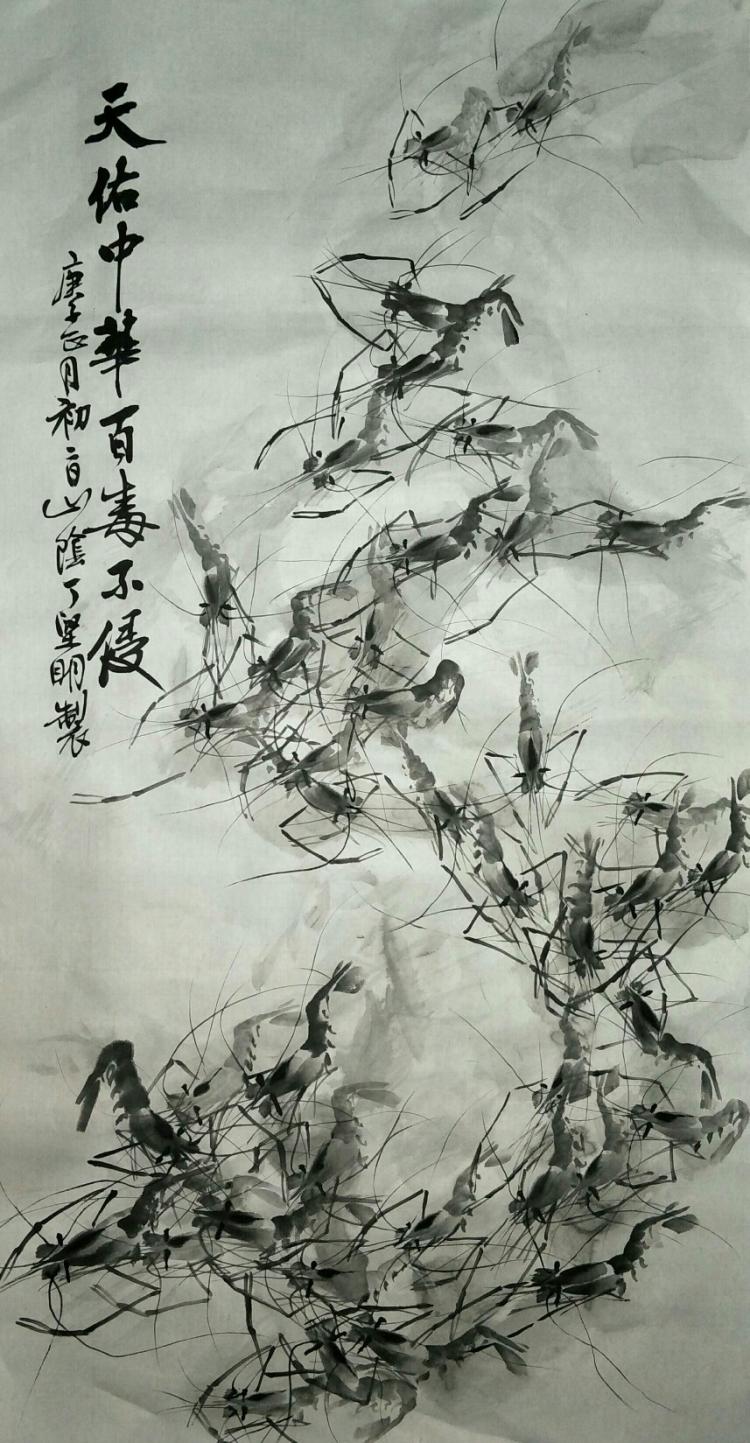 天佑中華百毒不侵
庚子正月初二日山陰丁堅明製